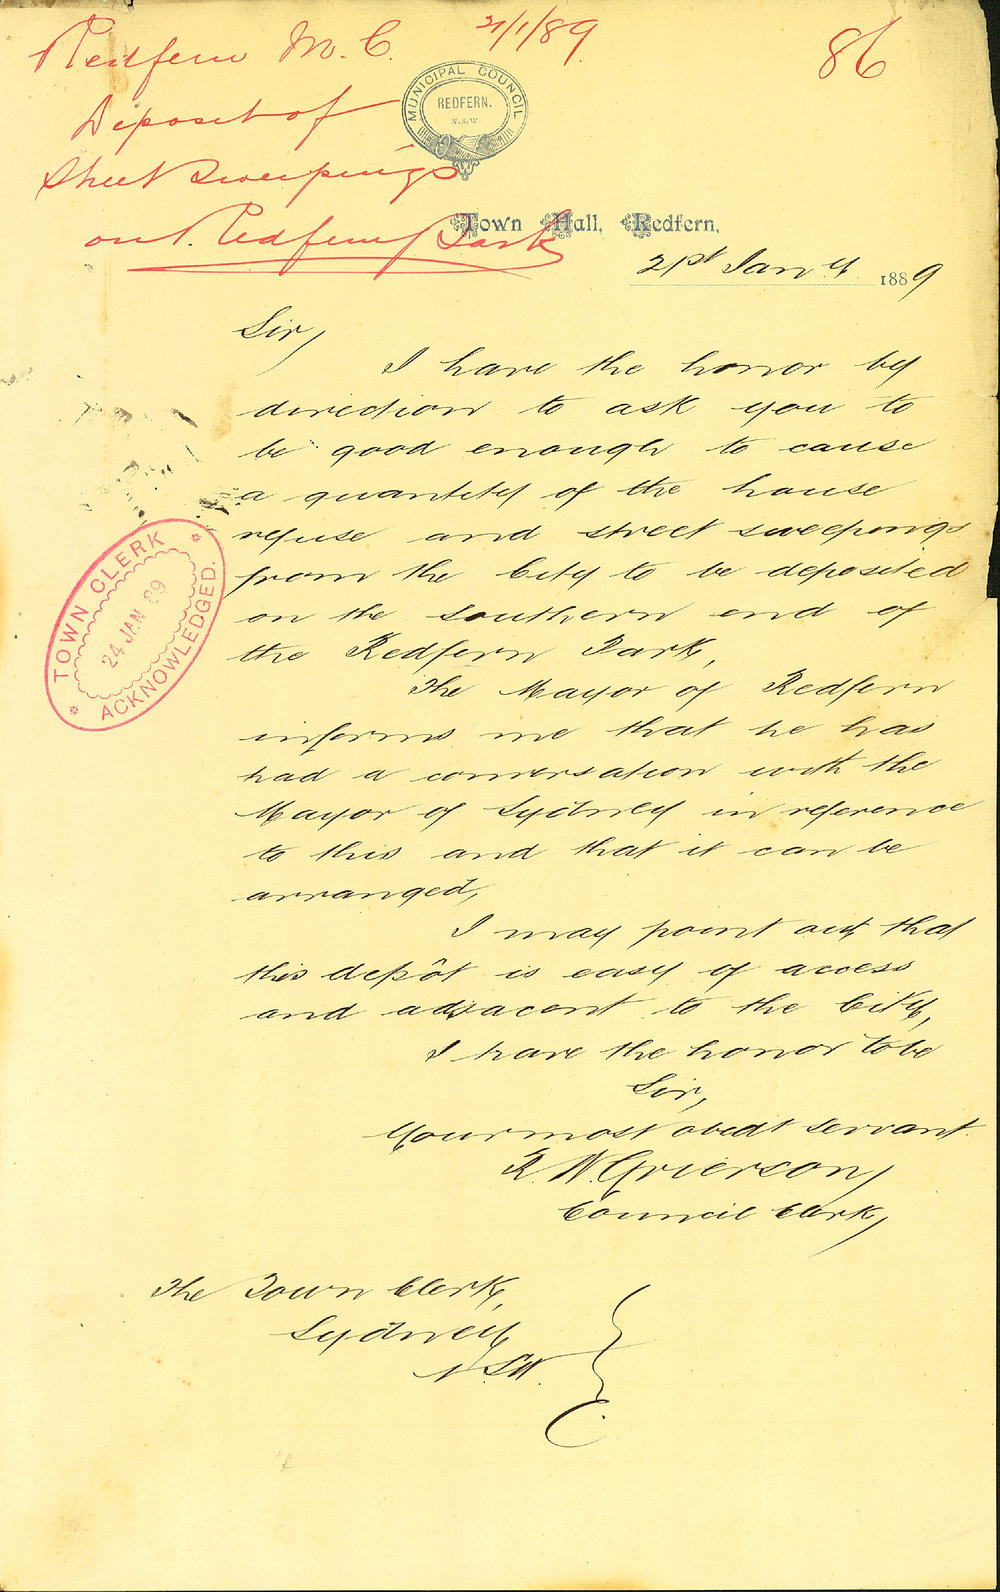 Redfern M. C. 21/1/89 86
Deposit of
Street Sweepings
on Redfern Park
MUNICIPAL COUNCIL
REDFERN.
N.S.W.
Town Hall, Redfern,
21st Jany 1889
Sir,
I have the honor by
direction to ask you to
be good enough to cause
a quantity of the house
refuse and street sweepings
from the City to be deposited
on the southern end of
the Redfern Park,
The Mayor of Redfern
informs me that he has
had a conversation with the
Mayor of Sydney in reference
to this and that it can be
arranged,
I may point out that
this depôt is easy of access
and adjacent to the City,
I have the honor to be
Sir,
Your most obedt servant
R. W. Grierson,
Council Clerk,
The Town Clerk,
Sydney
N.S.W.
TOWN CLERK
24 JAN 89
ACKNOWLEDGED.